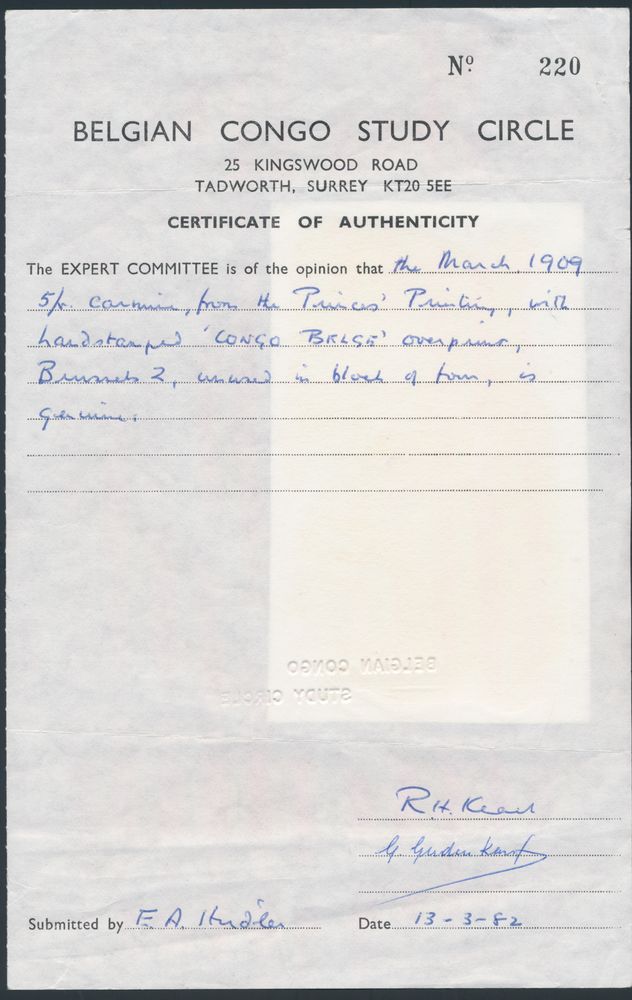 Nº 220
BELGIAN CONGO STUDY CIRCLE
25 KINGSWOOD ROAD
TADWORTH, SURREY KT20 5EE
CERTIFICATE OF AUTHENTICITY
The EXPERT COMMITTEE is of the opinion that the March 1909
5fr. carmine, from the Princes' Printing, with
handstamped 'CONGO BELGE' overprint,
Brussels 2, unused in block of four, is
genuine.
BELGIAN CONGO
STUDY CIRCLE
R.H. Keach
Submitted by F. A. Date 13-3-82